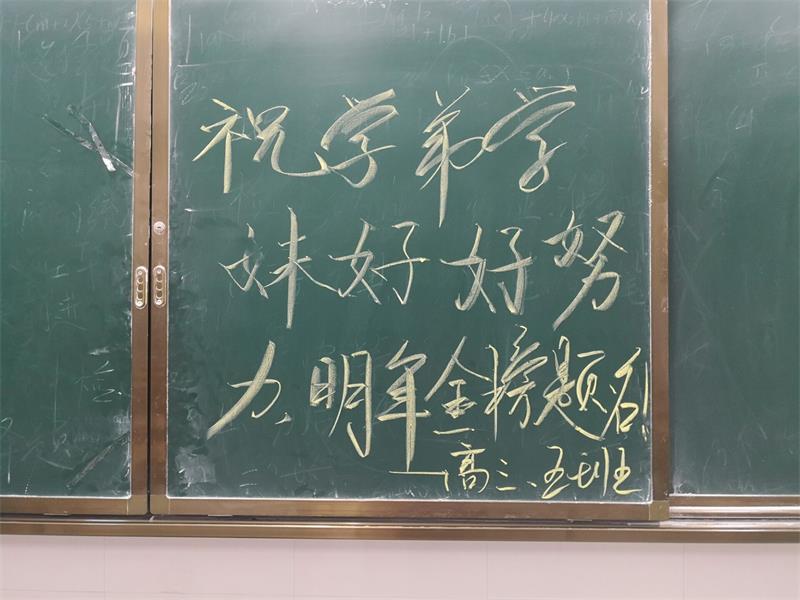 祝学弟学
妹好好努
力、明年金榜题名!
——高三、五班